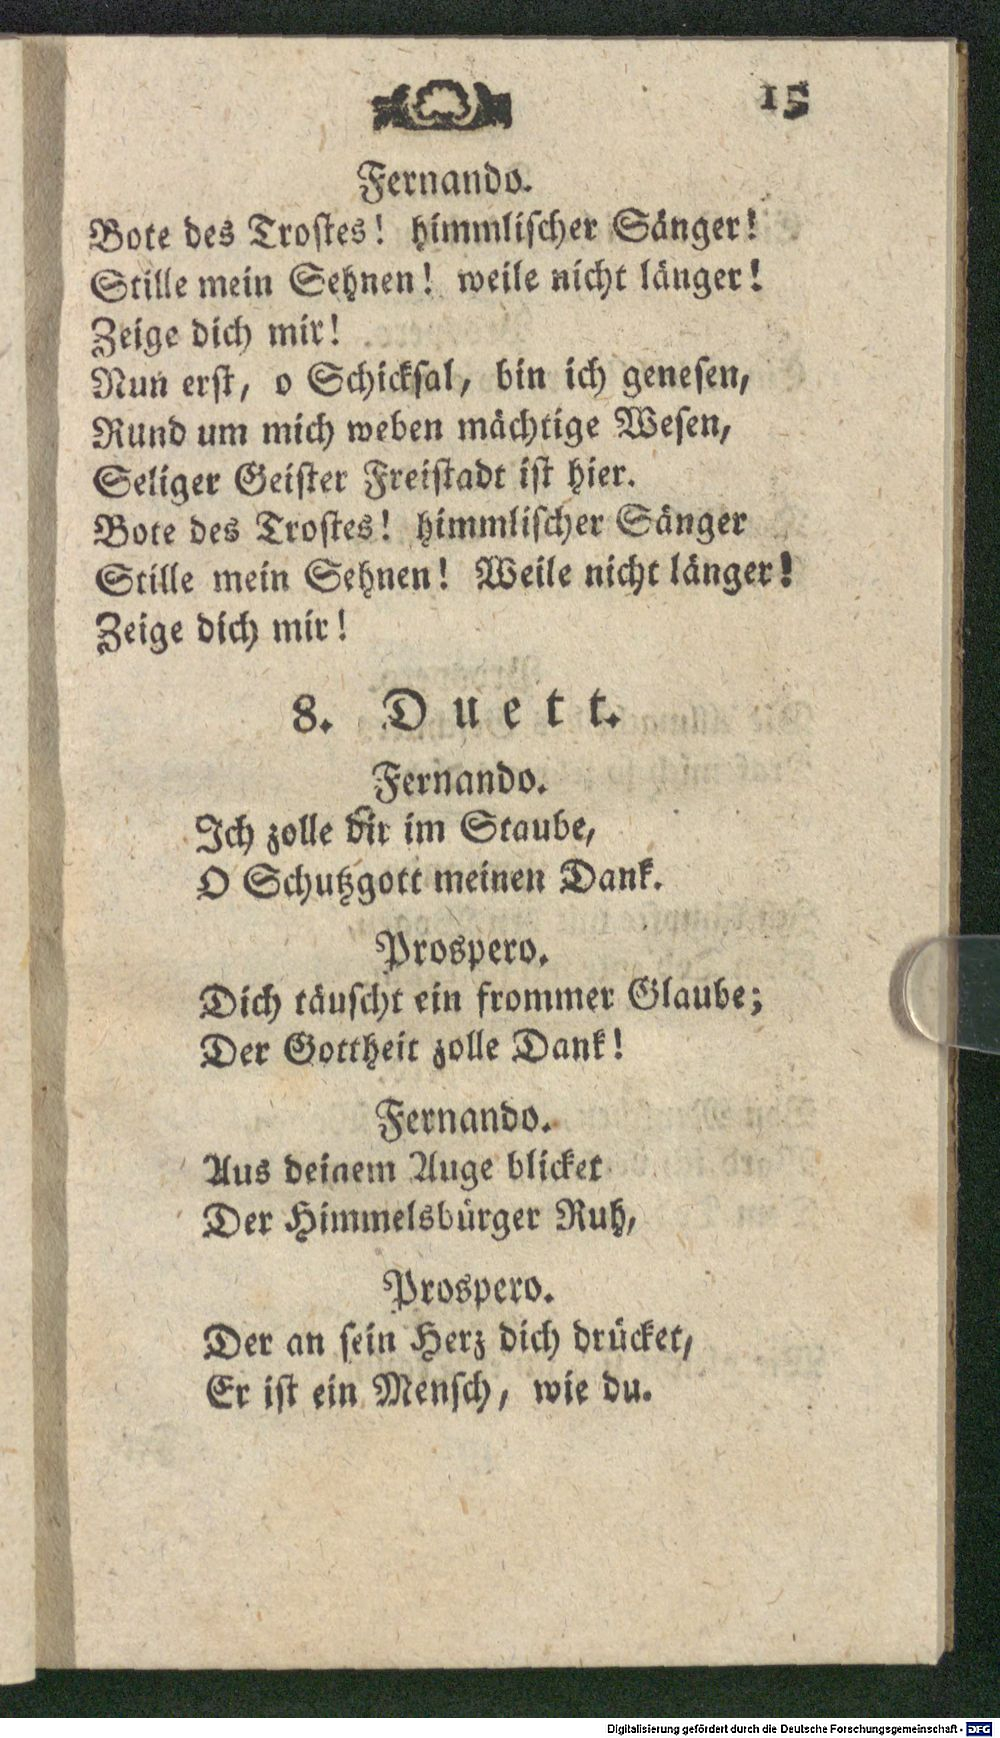 15
Fernando.
Bote des Trostes! himmlischer Sänger!
Stille mein Sehnen! weile nicht länger!
Zeige dich mir!
Nun erst, o Schicksal, bin ich genesen,
Rund um mich weben mächtige Wesen,
Seliger Geister Freistadt ist hier.
Bote des Trostes! himmlischer Sänger
Stille mein Sehnen! Weile nicht länger!
Zeige dich mir!
8. Duett.
Fernando.
Ich zolle dir im Staube,
O Schutzgott meinen Dank.
Prospero.
Dich täuscht ein frommer Glaube;
Der Gottheit zolle Dank!
Fernando.
Aus deinem Auge blicket
Der Himmelsbürger Ruh,
Prospero.
Der an sein Herz dich drücket,
Er ist ein Mensch, wie du.
Digitalisierung gefördert durch die Deutsche Forschungsgemeinschaft - DFG